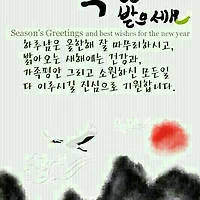 받으세요
Season's Greetings and best wishes for the new year
하루남은 올한해 잘 마무리하시고,
밝아오는 새해에는 건강과,
가족평안 그리고 소원하신 모든일
다 이루시길 진심으로 기원합니다.